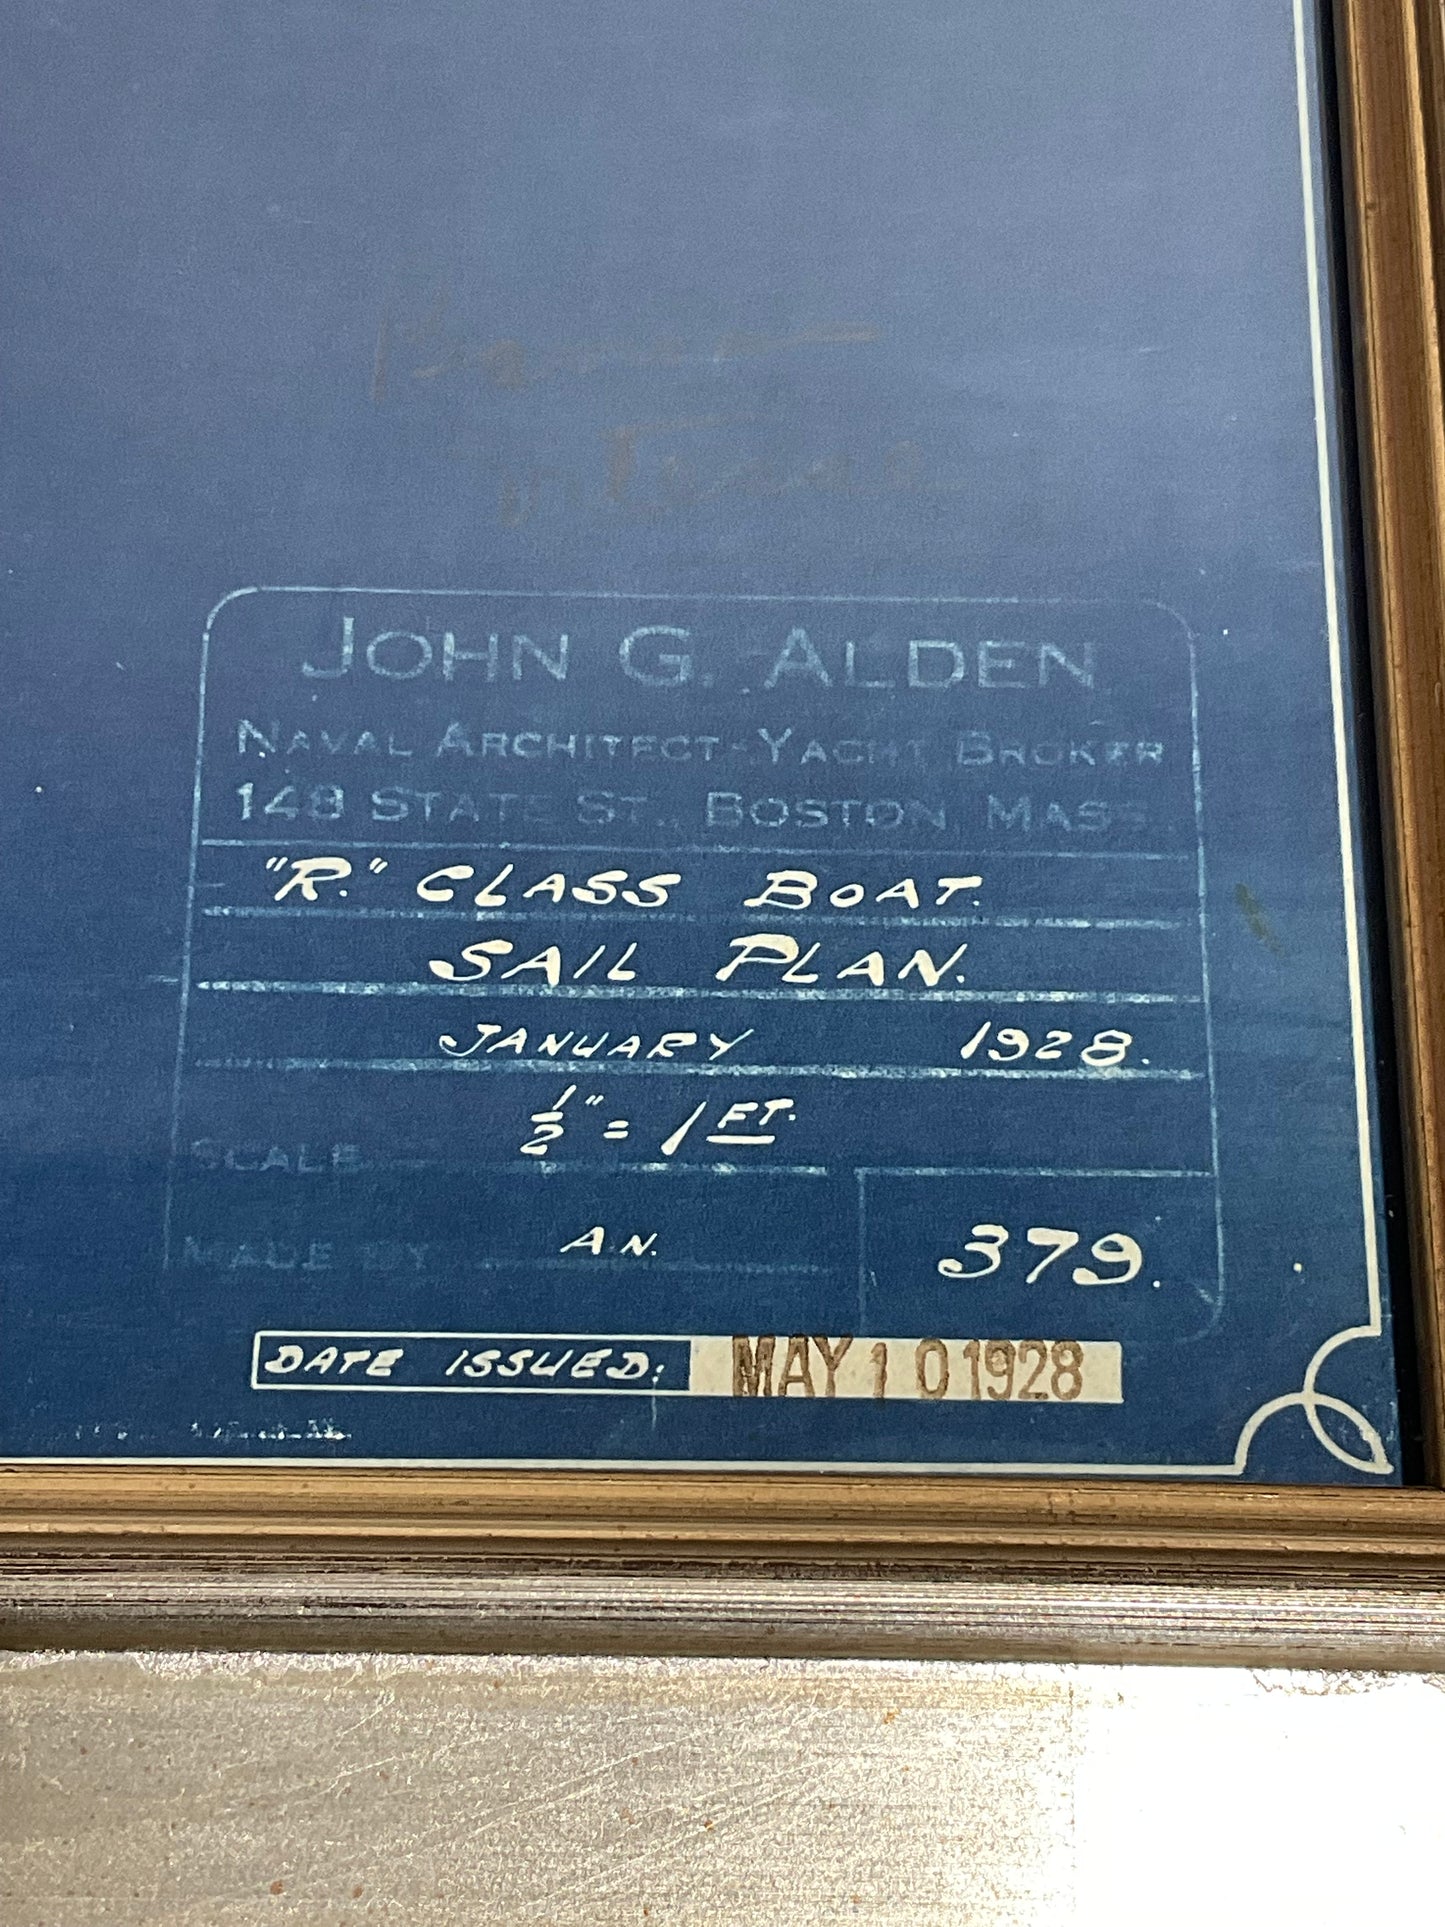 JOHN G. ALDEN
NAVAL ARCHITECT-YACHT BROKER
148 STATE ST., BOSTON, MASS.
"R." CLASS BOAT.
SAIL PLAN.
JANUARY 1928.
SCALE 1/2" = 1 FT.
MADE BY A.N.
379.
DATE ISSUED: MAY 10 1928